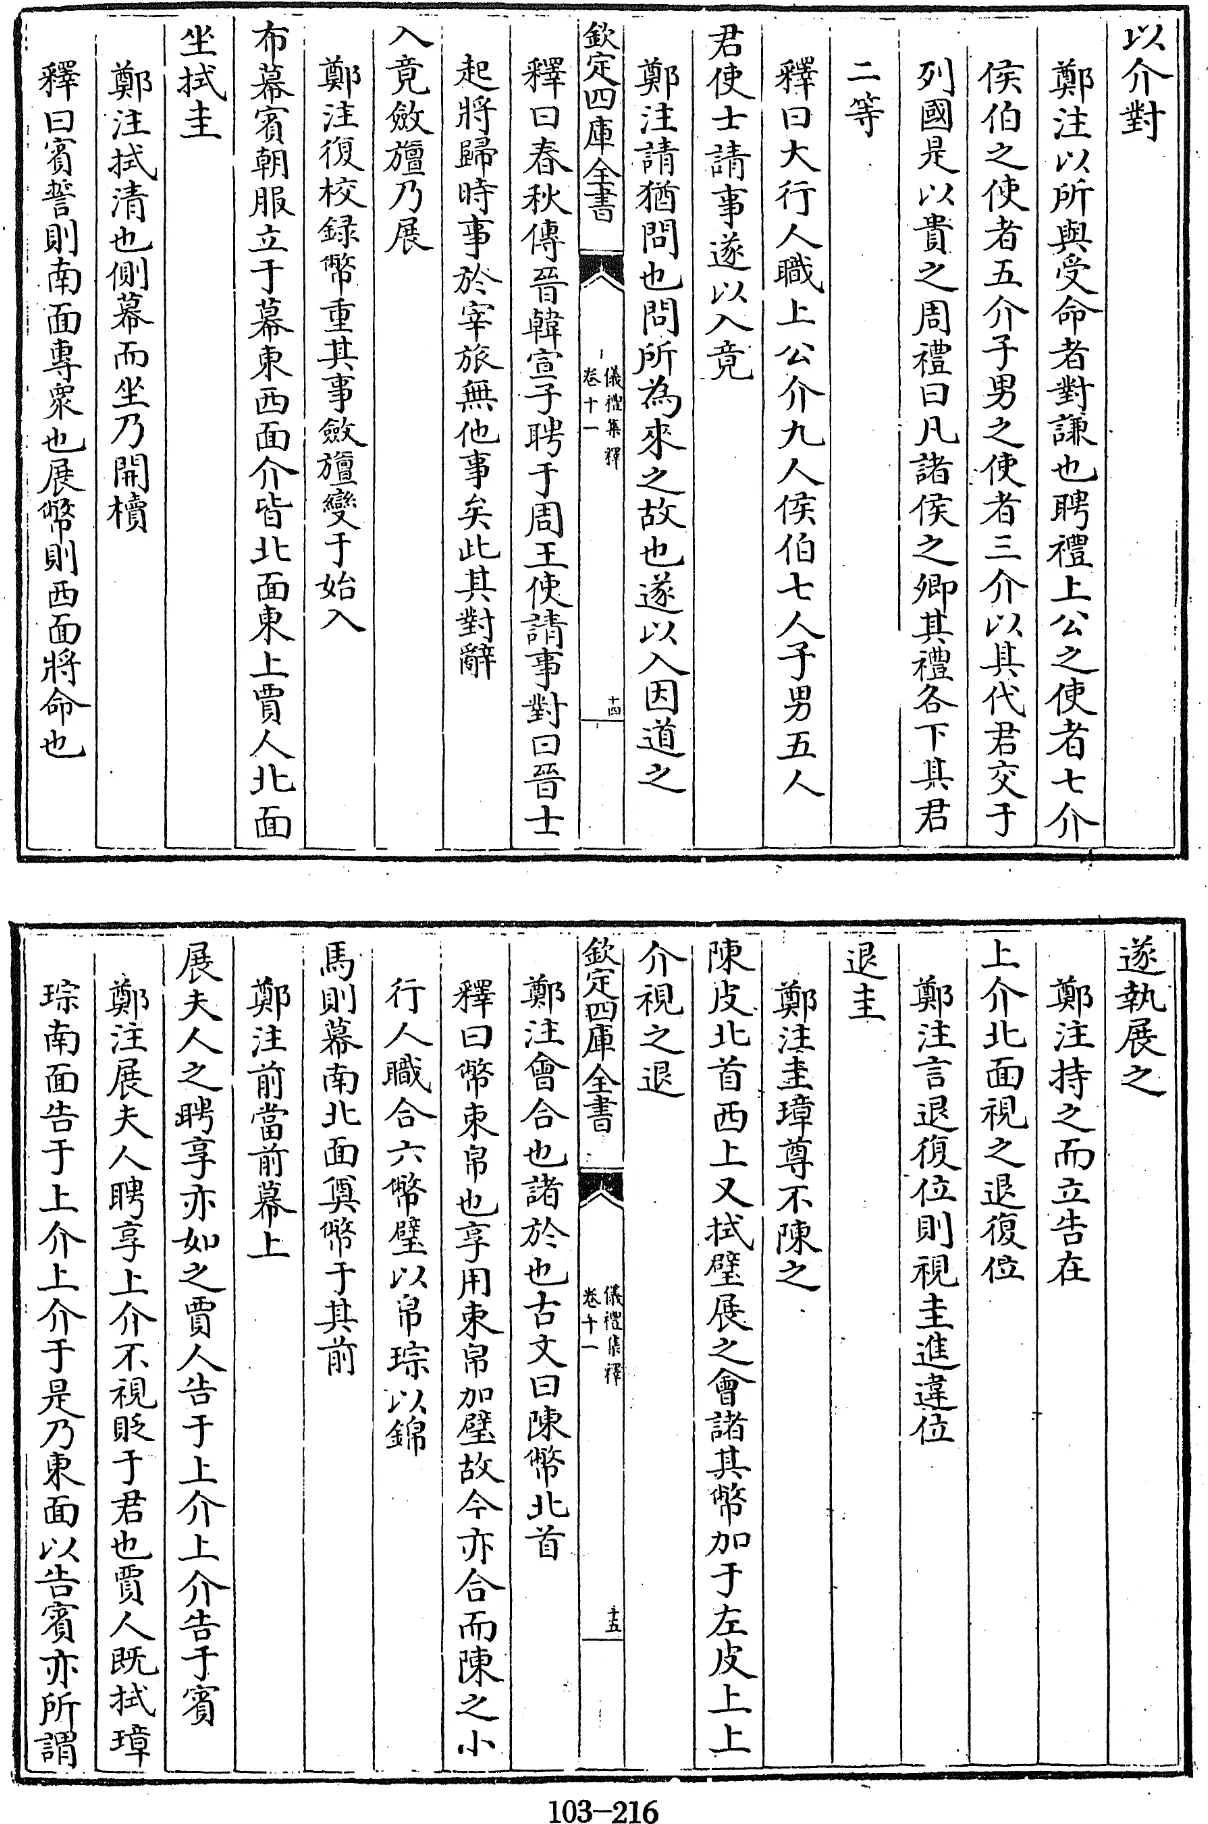 以介對
鄭注以所與受命者對謙也聘禮上公之使者七介
侯伯之使者五介子男之使者三介以其代君交于
列國是以貴之周禮曰凡諸侯之卿其禮各下其君
二等
釋曰大行人職上公介九人侯伯七人子男五人
君使士請事遂以入竟
鄭注請猶問也問所為來之故也遂以入因道之
欽定四庫全書
儀禮集釋
卷十一
十四
釋曰春秋傳晉韓宣子聘于周王使請事對曰晉士
起將歸時事於宰旅無他事矣此其對辭
入竟斂旜乃展
鄭注復校録幣重其事斂旜變于始入
布幕賓朝服立于幕東西面介皆北面東上賈人北面
坐拭圭
鄭注拭清也側幕而坐乃開櫝
釋曰賓誓則南面專衆也展幣則西面將命也
遂執展之
鄭注持之而立告在
上介北面視之退復位
鄭注言退復位則視圭進違位
退圭
鄭注圭璋尊不陳之
陳皮北首西上又拭璧展之會諸其幣加于左皮上上
介視之退
欽定四庫全書
儀禮集釋
卷十一
十五
鄭注會合也諸於也古文曰陳幣北首
釋曰幣束帛也享用束帛加璧故今亦合而陳之小
行人職合六幣璧以帛琮以錦
馬則幕南北面奠幣于其前
鄭注前當前幕上
展夫人之聘享亦如之賈人告于上介上介告于賓
鄭注展夫人聘享上介不視貶于君也賈人既拭璋
琮南面告于上介上介于是乃東面以告賓亦所謂
103-216